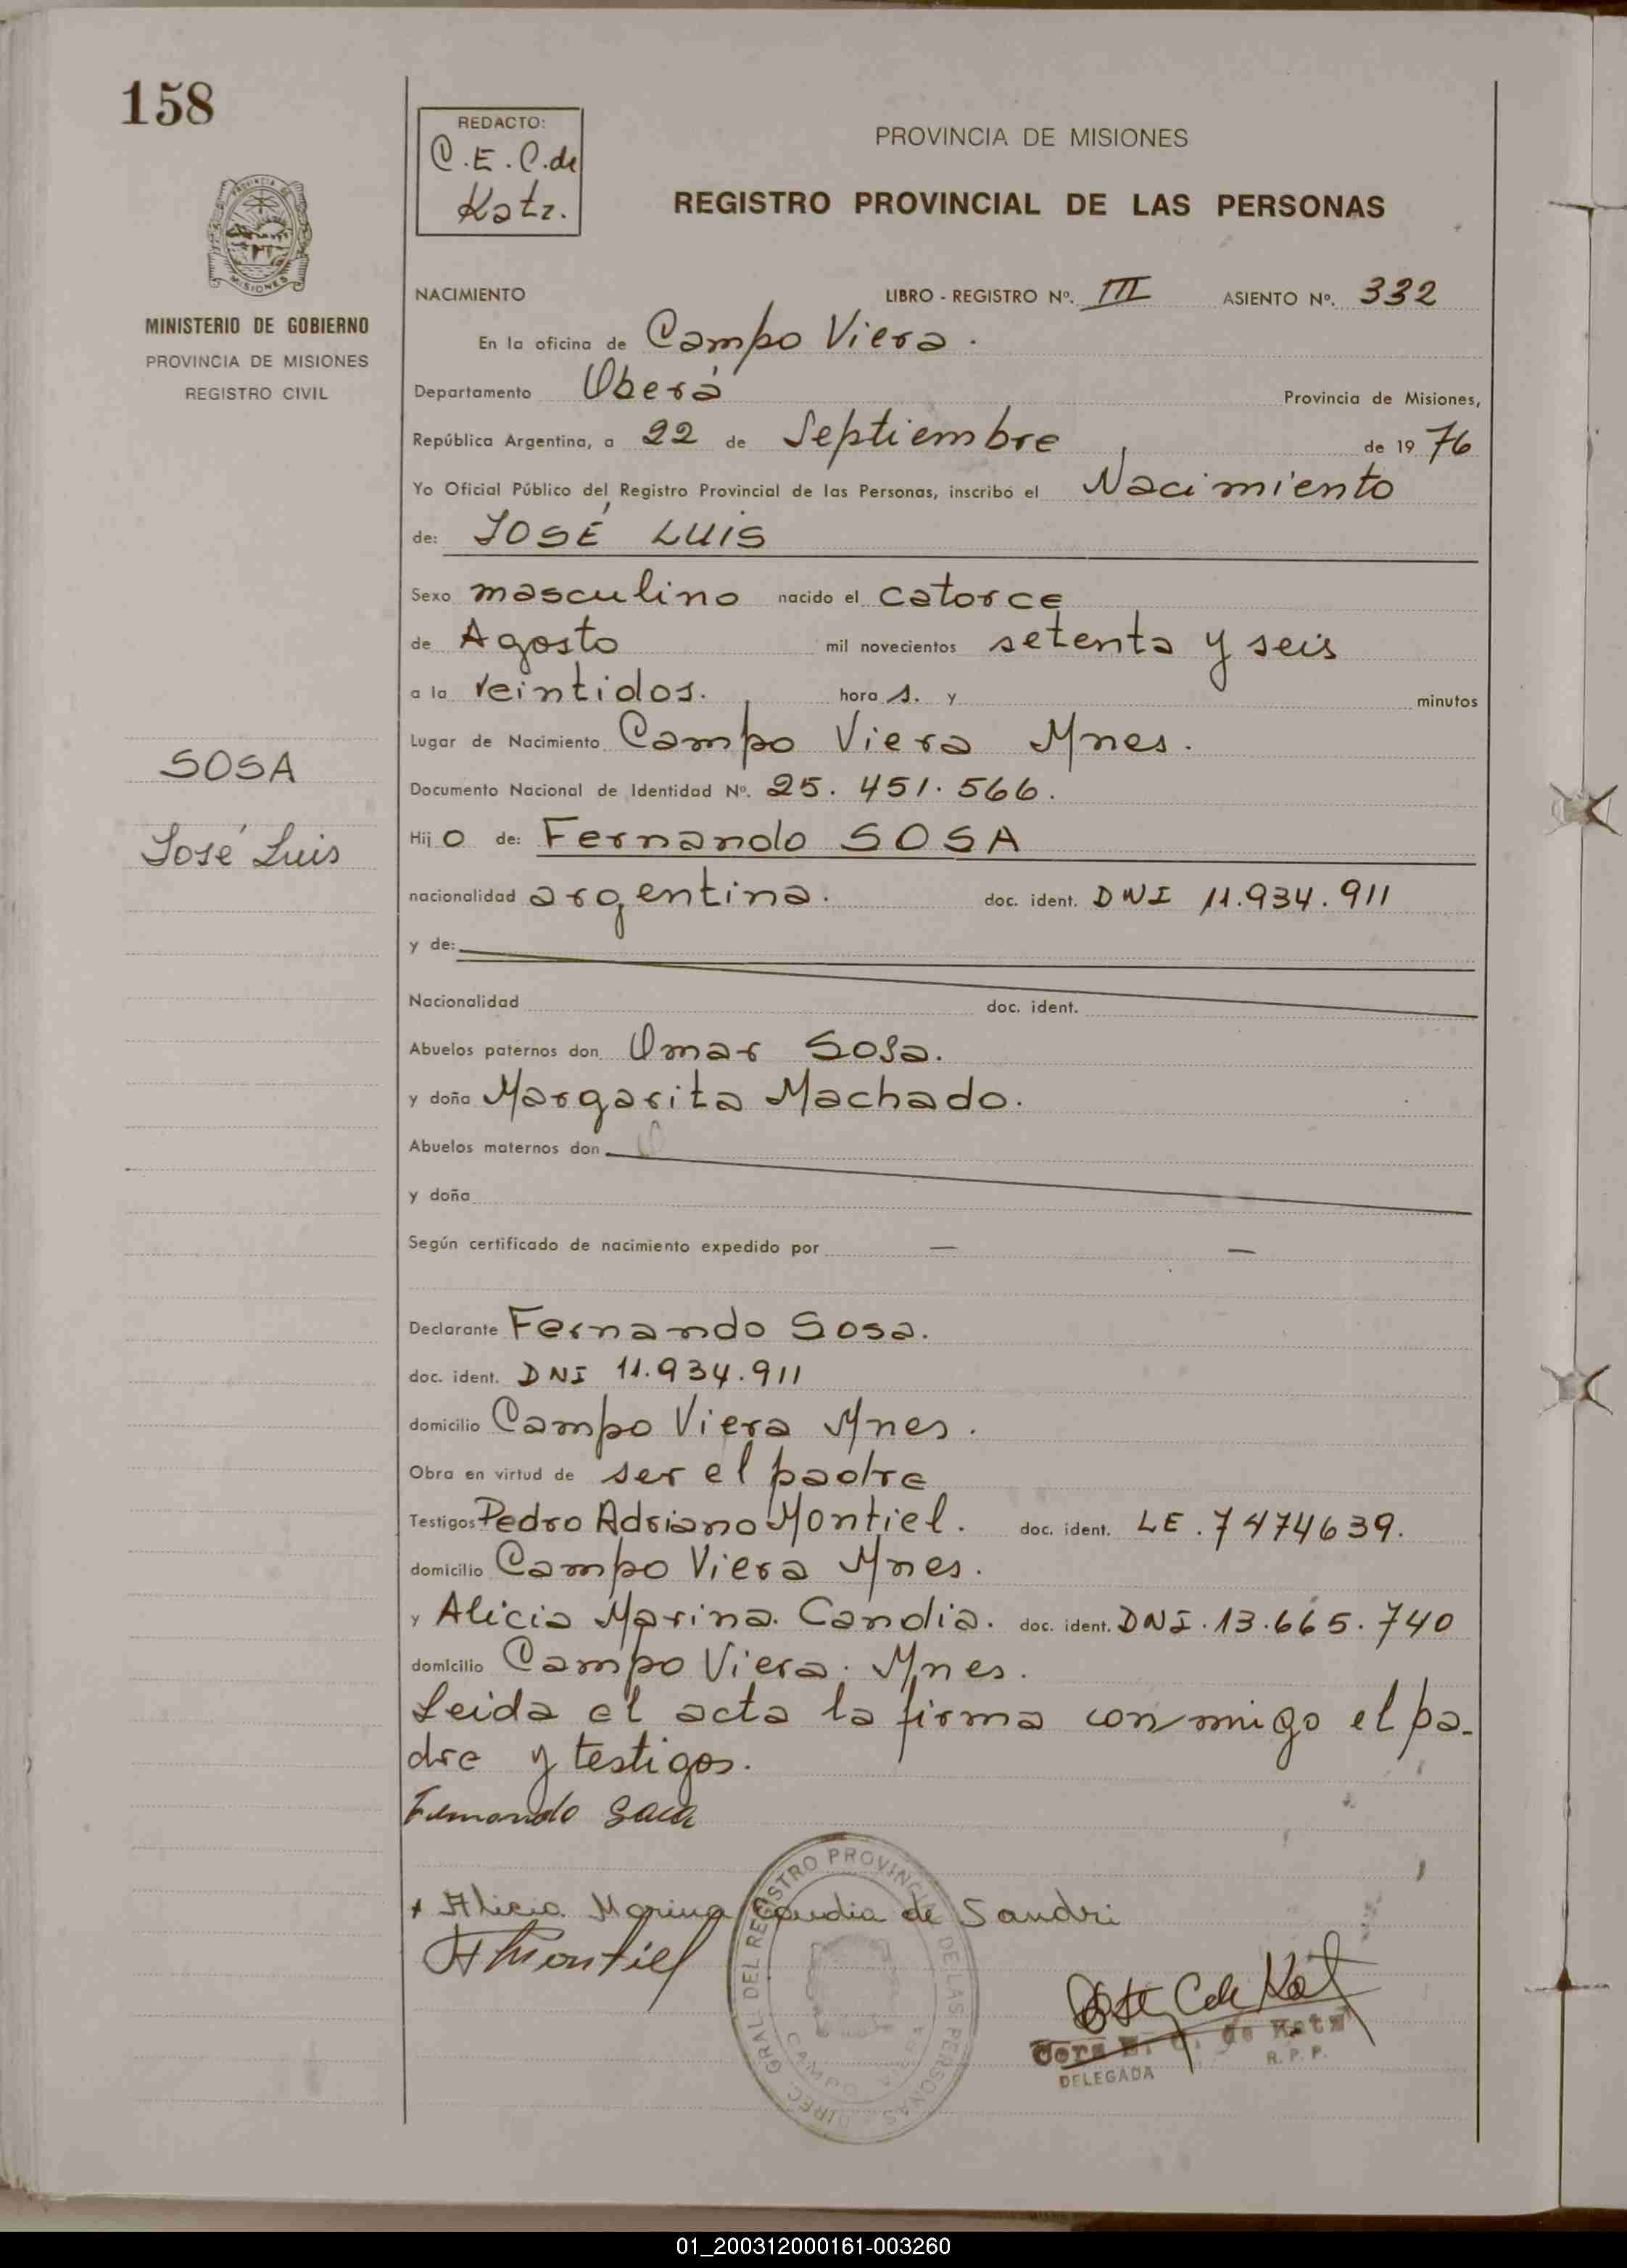 158
PROVINCIA DE
MISIONES
MINISTERIO DE GOBIERNO
PROVINCIA DE MISIONES
REGISTRO CIVIL
SOSA
José Luis
REDACTO:
C.E.C.de
Katz.
PROVINCIA DE MISIONES
REGISTRO PROVINCIAL DE LAS PERSONAS
NACIMIENTO LIBRO - REGISTRO Nº. III ASIENTO Nº. 332
En la oficina de Campo Viera.
Departamento Oberá Provincia de Misiones,
República Argentina, a 22 de Septiembre de 1976
Yo Oficial Público del Registro Provincial de las Personas, inscribo el Nacimiento
de: JOSÉ LUIS
Sexo masculino nacido el catorce
de Agosto mil novecientos setenta y seis
a la veintidos. hora s. y minutos
Lugar de Nacimiento Campo Viera Mnes.
Documento Nacional de Identidad Nº. 25.451.566.
Hijo de: Fernando SOSA
nacionalidad argentina. doc. ident. DNI 11.934.911
y de:
Nacionalidad doc. ident.
Abuelos paternos don Omar Sosa.
y doña Margarita Machado.
Abuelos maternos don
y doña
Según certificado de nacimiento expedido por — —
Declarante Fernando Sosa.
doc. ident. DNI 11.934.911
domicilio Campo Viera Mnes.
Obra en virtud de ser el padre
Testigos Pedro Adriano Montiel. doc. ident. LE. 7474639.
domicilio Campo Viera Mnes.
y Alicia Marina. Candia. doc. ident. DNI. 13.665.740
domicilio Campo Viera. Mnes.
Leida el acta la firma conmigo el pa-
dre y testigos.
Fernando Sosa
+ Alicia Marina Candia de Sandri
AMontiel
DIREC. GRAL. DEL REGISTRO PROVINCIAL DE LAS PERSONAS
CAMPO VIERA
E. C. de Katz
DELEGADA R. P. P.
01_200312000161-003260